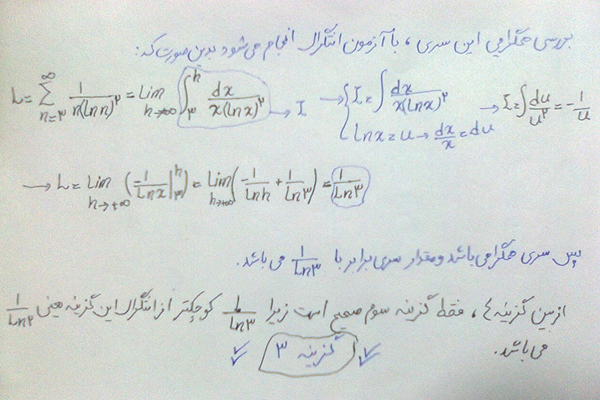 بررسی همگرایی این سری، با آزمون انتگرال انجام می‌شود بدین صورت که:
L = ∑_{n=۳}^{∞} 1/(n(ln n)^۲) = Lim_{h→+∞} ∫_۳^h dx/(x(ln x)^۲) → I → { I = ∫ dx/(x(ln x)^۲) , ln x = u → dx/x = du → I = ∫ du/u^۲ = -1/u
→ L = Lim_{h→+∞} (-1/Ln x |_۳^h) = Lim_{h→+∞} (-1/Ln h + 1/Ln ۳) = 1/Ln ۳
پس سری همگرا می باشد و مقدار سری برابر با 1/Ln ۳ می باشد.
از بین گزینه ها، فقط گزینه سوم صحیح است زیرا 1/Ln ۳ کوچکتر از انتگرال این گزینه یعنی 1/Ln ۲
می باشد.
✓ گزینه ۳ ✓